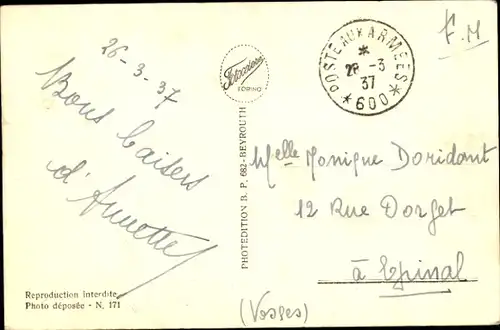 26-3-37
Bons baisers
d'Annette
Reproduction interdite
Photo déposée - N. 171
Ferrania
TORINO
PHOTEDITION B. P. 682-BEYROUTH
F.M
POSTE AUX ARMEES
*
28 -3
37
* 600 *
Melle Monique Doridant
12 Rue Dorget
à Epinal
(Vosges)